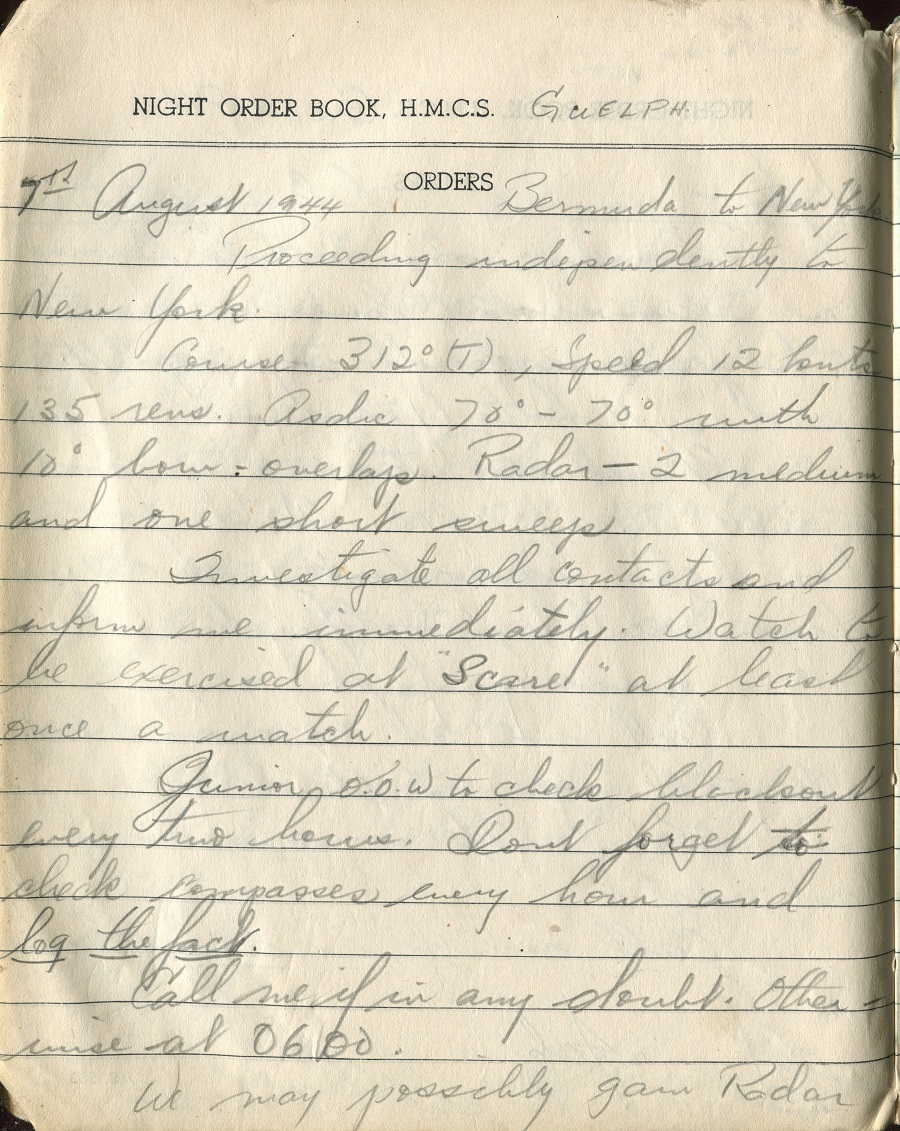 NIGHT ORDER BOOK, H.M.C.S. GUELPH
ORDERS
7th August 1944 Bermuda to New York
Proceeding independently to
New York.
Course 312° (T), Speed 12 knots
135 revs. Asdic 70° - 70° with
10° bow - overlaps. Radar - 2 medium
and one short sweeps
Investigate all contacts and
inform me immediately. Watch to
be exercised at "Scare" at least
once a watch.
Junior O.O.W to check blackout
every two hours. Dont forget to
check compasses every hour and
log the fact.
Call me if in any doubt. Other-
wise at 0600.
We may possibly gain Radar